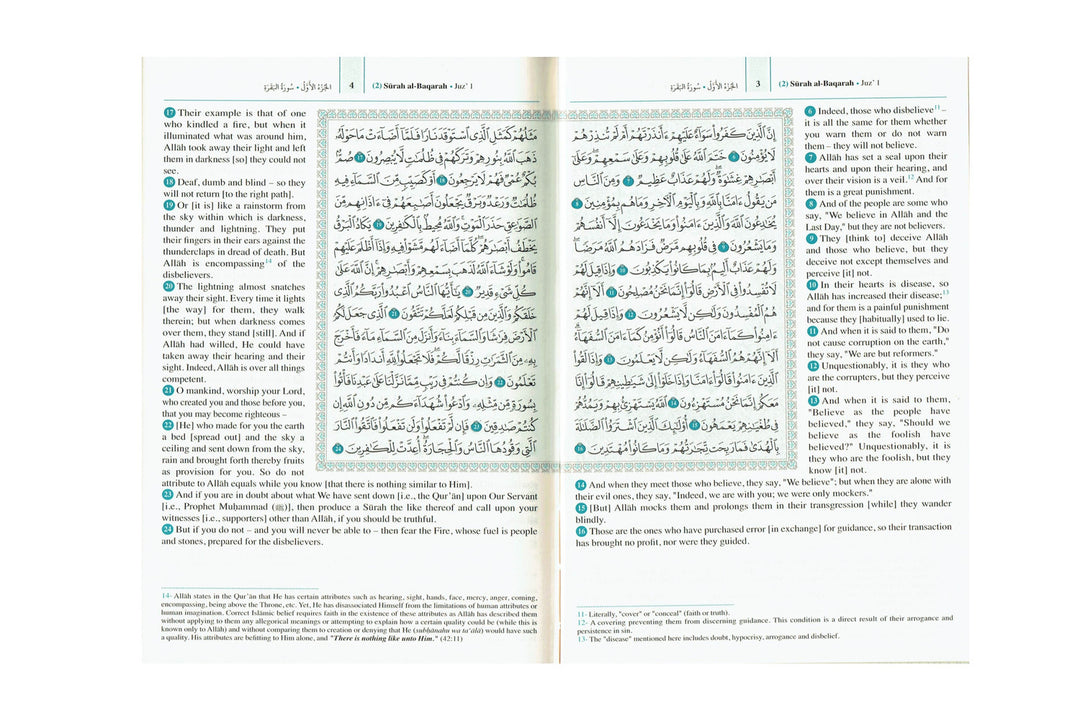 الجزء الأول • سورة البقرة 3 (2) Sūrah al-Baqarah • Juz' 1
إِنَّ الَّذِينَ كَفَرُوا سَوَاءٌ عَلَيْهِمْ ءَأَنذَرْتَهُمْ أَمْ لَمْ تُنذِرْهُمْ
لَا يُؤْمِنُونَ 6 خَتَمَ اللَّهُ عَلَىٰ قُلُوبِهِمْ وَعَلَىٰ سَمْعِهِمْ ۖ وَعَلَىٰ
أَبْصَٰرِهِمْ غِشَٰوَةٌ ۖ وَلَهُمْ عَذَابٌ عَظِيمٌ 7 وَمِنَ النَّاسِ
مَن يَقُولُ ءَامَنَّا بِاللَّهِ وَبِالْيَوْمِ الْءَاخِرِ وَمَا هُم بِمُؤْمِنِينَ 8
يُخَٰدِعُونَ اللَّهَ وَالَّذِينَ ءَامَنُوا وَمَا يَخْدَعُونَ إِلَّا أَنفُسَهُمْ
وَمَا يَشْعُرُونَ 9 فِي قُلُوبِهِم مَّرَضٌ فَزَادَهُمُ اللَّهُ مَرَضًا ۖ
وَلَهُمْ عَذَابٌ أَلِيمٌ بِمَا كَانُوا يَكْذِبُونَ 10 وَإِذَا قِيلَ لَهُمْ
لَا تُفْسِدُوا فِي الْأَرْضِ قَالُوا إِنَّمَا نَحْنُ مُصْلِحُونَ 11 أَلَا إِنَّهُمْ
هُمُ الْمُفْسِدُونَ وَلَٰكِن لَّا يَشْعُرُونَ 12 وَإِذَا قِيلَ لَهُمْ
ءَامِنُوا كَمَا ءَامَنَ النَّاسُ قَالُوا أَنُؤْمِنُ كَمَا ءَامَنَ السُّفَهَاءُ ۗ
أَلَا إِنَّهُمْ هُمُ السُّفَهَاءُ وَلَٰكِن لَّا يَعْلَمُونَ 13 وَإِذَا لَقُوا
الَّذِينَ ءَامَنُوا قَالُوا ءَامَنَّا وَإِذَا خَلَوْا إِلَىٰ شَيَٰطِينِهِمْ قَالُوا إِنَّا
مَعَكُمْ إِنَّمَا نَحْنُ مُسْتَهْزِءُونَ 14 اللَّهُ يَسْتَهْزِئُ بِهِمْ وَيَمُدُّهُمْ
فِي طُغْيَٰنِهِمْ يَعْمَهُونَ 15 أُولَٰئِكَ الَّذِينَ اشْتَرَوُا الضَّلَٰلَةَ
بِالْهُدَىٰ فَمَا رَبِحَت تِّجَٰرَتُهُمْ وَمَا كَانُوا مُهْتَدِينَ 16
6 Indeed, those who disbelieve11 –
it is all the same for them whether
you warn them or do not warn
them – they will not believe.
7 Allāh has set a seal upon their
hearts and upon their hearing, and
over their vision is a veil.12 And for
them is a great punishment.
8 And of the people are some who
say, "We believe in Allāh and the
Last Day," but they are not believers.
9 They [think to] deceive Allāh
and those who believe, but they
deceive not except themselves and
perceive [it] not.
10 In their hearts is disease, so
Allāh has increased their disease;13
and for them is a painful punishment
because they [habitually] used to lie.
11 And when it is said to them, "Do
not cause corruption on the earth,"
they say, "We are but reformers."
12 Unquestionably, it is they who
are the corrupters, but they perceive
[it] not.
13 And when it is said to them,
"Believe as the people have
believed," they say, "Should we
believe as the foolish have
believed?" Unquestionably, it is
they who are the foolish, but they
know [it] not.
14 And when they meet those who believe, they say, "We believe"; but when they are alone with
their evil ones, they say, "Indeed, we are with you; we were only mockers."
15 [But] Allāh mocks them and prolongs them in their transgression [while] they wander
blindly.
16 Those are the ones who have purchased error [in exchange] for guidance, so their transaction
has brought no profit, nor were they guided.
11- Literally, "cover" or "conceal" (faith or truth).
12- A covering preventing them from discerning guidance. This condition is a direct result of their arrogance and
persistence in sin.
13- The "disease" mentioned here includes doubt, hypocrisy, arrogance and disbelief.
الجزء الأول • سورة البقرة 4 (2) Sūrah al-Baqarah • Juz' 1
مَثَلُهُمْ كَمَثَلِ الَّذِي اسْتَوْقَدَ نَارًا فَلَمَّا أَضَاءَتْ مَا حَوْلَهُ
ذَهَبَ اللَّهُ بِنُورِهِمْ وَتَرَكَهُمْ فِي ظُلُمَٰتٍ لَّا يُبْصِرُونَ 17 صُمٌّ
بُكْمٌ عُمْيٌ فَهُمْ لَا يَرْجِعُونَ 18 أَوْ كَصَيِّبٍ مِّنَ السَّمَاءِ فِيهِ
ظُلُمَٰتٌ وَرَعْدٌ وَبَرْقٌ يَجْعَلُونَ أَصَٰبِعَهُمْ فِي ءَاذَانِهِم مِّنَ
الصَّوَٰعِقِ حَذَرَ الْمَوْتِ ۚ وَاللَّهُ مُحِيطٌ بِالْكَٰفِرِينَ 19 يَكَادُ الْبَرْقُ
يَخْطَفُ أَبْصَٰرَهُمْ ۖ كُلَّمَا أَضَاءَ لَهُم مَّشَوْا فِيهِ وَإِذَا أَظْلَمَ عَلَيْهِمْ
قَامُوا ۚ وَلَوْ شَاءَ اللَّهُ لَذَهَبَ بِسَمْعِهِمْ وَأَبْصَٰرِهِمْ ۚ إِنَّ اللَّهَ عَلَىٰ
كُلِّ شَيْءٍ قَدِيرٌ 20 يَٰأَيُّهَا النَّاسُ اعْبُدُوا رَبَّكُمُ الَّذِي
خَلَقَكُمْ وَالَّذِينَ مِن قَبْلِكُمْ لَعَلَّكُمْ تَتَّقُونَ 21 الَّذِي جَعَلَ لَكُمُ
الْأَرْضَ فِرَٰشًا وَالسَّمَاءَ بِنَاءً وَأَنزَلَ مِنَ السَّمَاءِ مَاءً فَأَخْرَجَ
بِهِ مِنَ الثَّمَرَٰتِ رِزْقًا لَّكُمْ ۖ فَلَا تَجْعَلُوا لِلَّهِ أَندَادًا وَأَنتُمْ
تَعْلَمُونَ 22 وَإِن كُنتُمْ فِي رَيْبٍ مِّمَّا نَزَّلْنَا عَلَىٰ عَبْدِنَا فَأْتُوا
بِسُورَةٍ مِّن مِّثْلِهِ وَادْعُوا شُهَدَاءَكُم مِّن دُونِ اللَّهِ إِن
كُنتُمْ صَٰدِقِينَ 23 فَإِن لَّمْ تَفْعَلُوا وَلَن تَفْعَلُوا فَاتَّقُوا النَّارَ
الَّتِي وَقُودُهَا النَّاسُ وَالْحِجَارَةُ ۖ أُعِدَّتْ لِلْكَٰفِرِينَ 24
17 Their example is that of one
who kindled a fire, but when it
illuminated what was around him,
Allāh took away their light and left
them in darkness [so] they could not
see.
18 Deaf, dumb and blind – so they
will not return [to the right path].
19 Or [it is] like a rainstorm from
the sky within which is darkness,
thunder and lightning. They put
their fingers in their ears against the
thunderclaps in dread of death. But
Allāh is encompassing14 of the
disbelievers.
20 The lightning almost snatches
away their sight. Every time it lights
[the way] for them, they walk
therein; but when darkness comes
over them, they stand [still]. And if
Allāh had willed, He could have
taken away their hearing and their
sight. Indeed, Allāh is over all things
competent.
21 O mankind, worship your Lord,
who created you and those before you,
that you may become righteous –
22 [He] who made for you the earth
a bed [spread out] and the sky a
ceiling and sent down from the sky,
rain and brought forth thereby fruits
as provision for you. So do not
attribute to Allāh equals while you know [that there is nothing similar to Him].
23 And if you are in doubt about what We have sent down [i.e., the Qur'ān] upon Our Servant
[i.e., Prophet Muḥammad (ﷺ)], then produce a Sūrah the like thereof and call upon your
witnesses [i.e., supporters] other than Allāh, if you should be truthful.
24 But if you do not – and you will never be able to – then fear the Fire, whose fuel is people
and stones, prepared for the disbelievers.
14- Allāh states in the Qur'ān that He has certain attributes such as hearing, sight, hands, face, mercy, anger, coming,
encompassing, being above the Throne, etc. Yet, He has disassociated Himself from the limitations of human attributes or
human imagination. Correct Islāmic belief requires faith in the existence of these attributes as Allāh has described them
without applying to them any allegorical meanings or attempting to explain how a certain quality could be (while this is
known only to Allāh) and without comparing them to creation or denying that He (subḥānahu wa taʻālā) would have such
a quality. His attributes are befitting to Him alone, and "There is nothing like unto Him." (42:11)